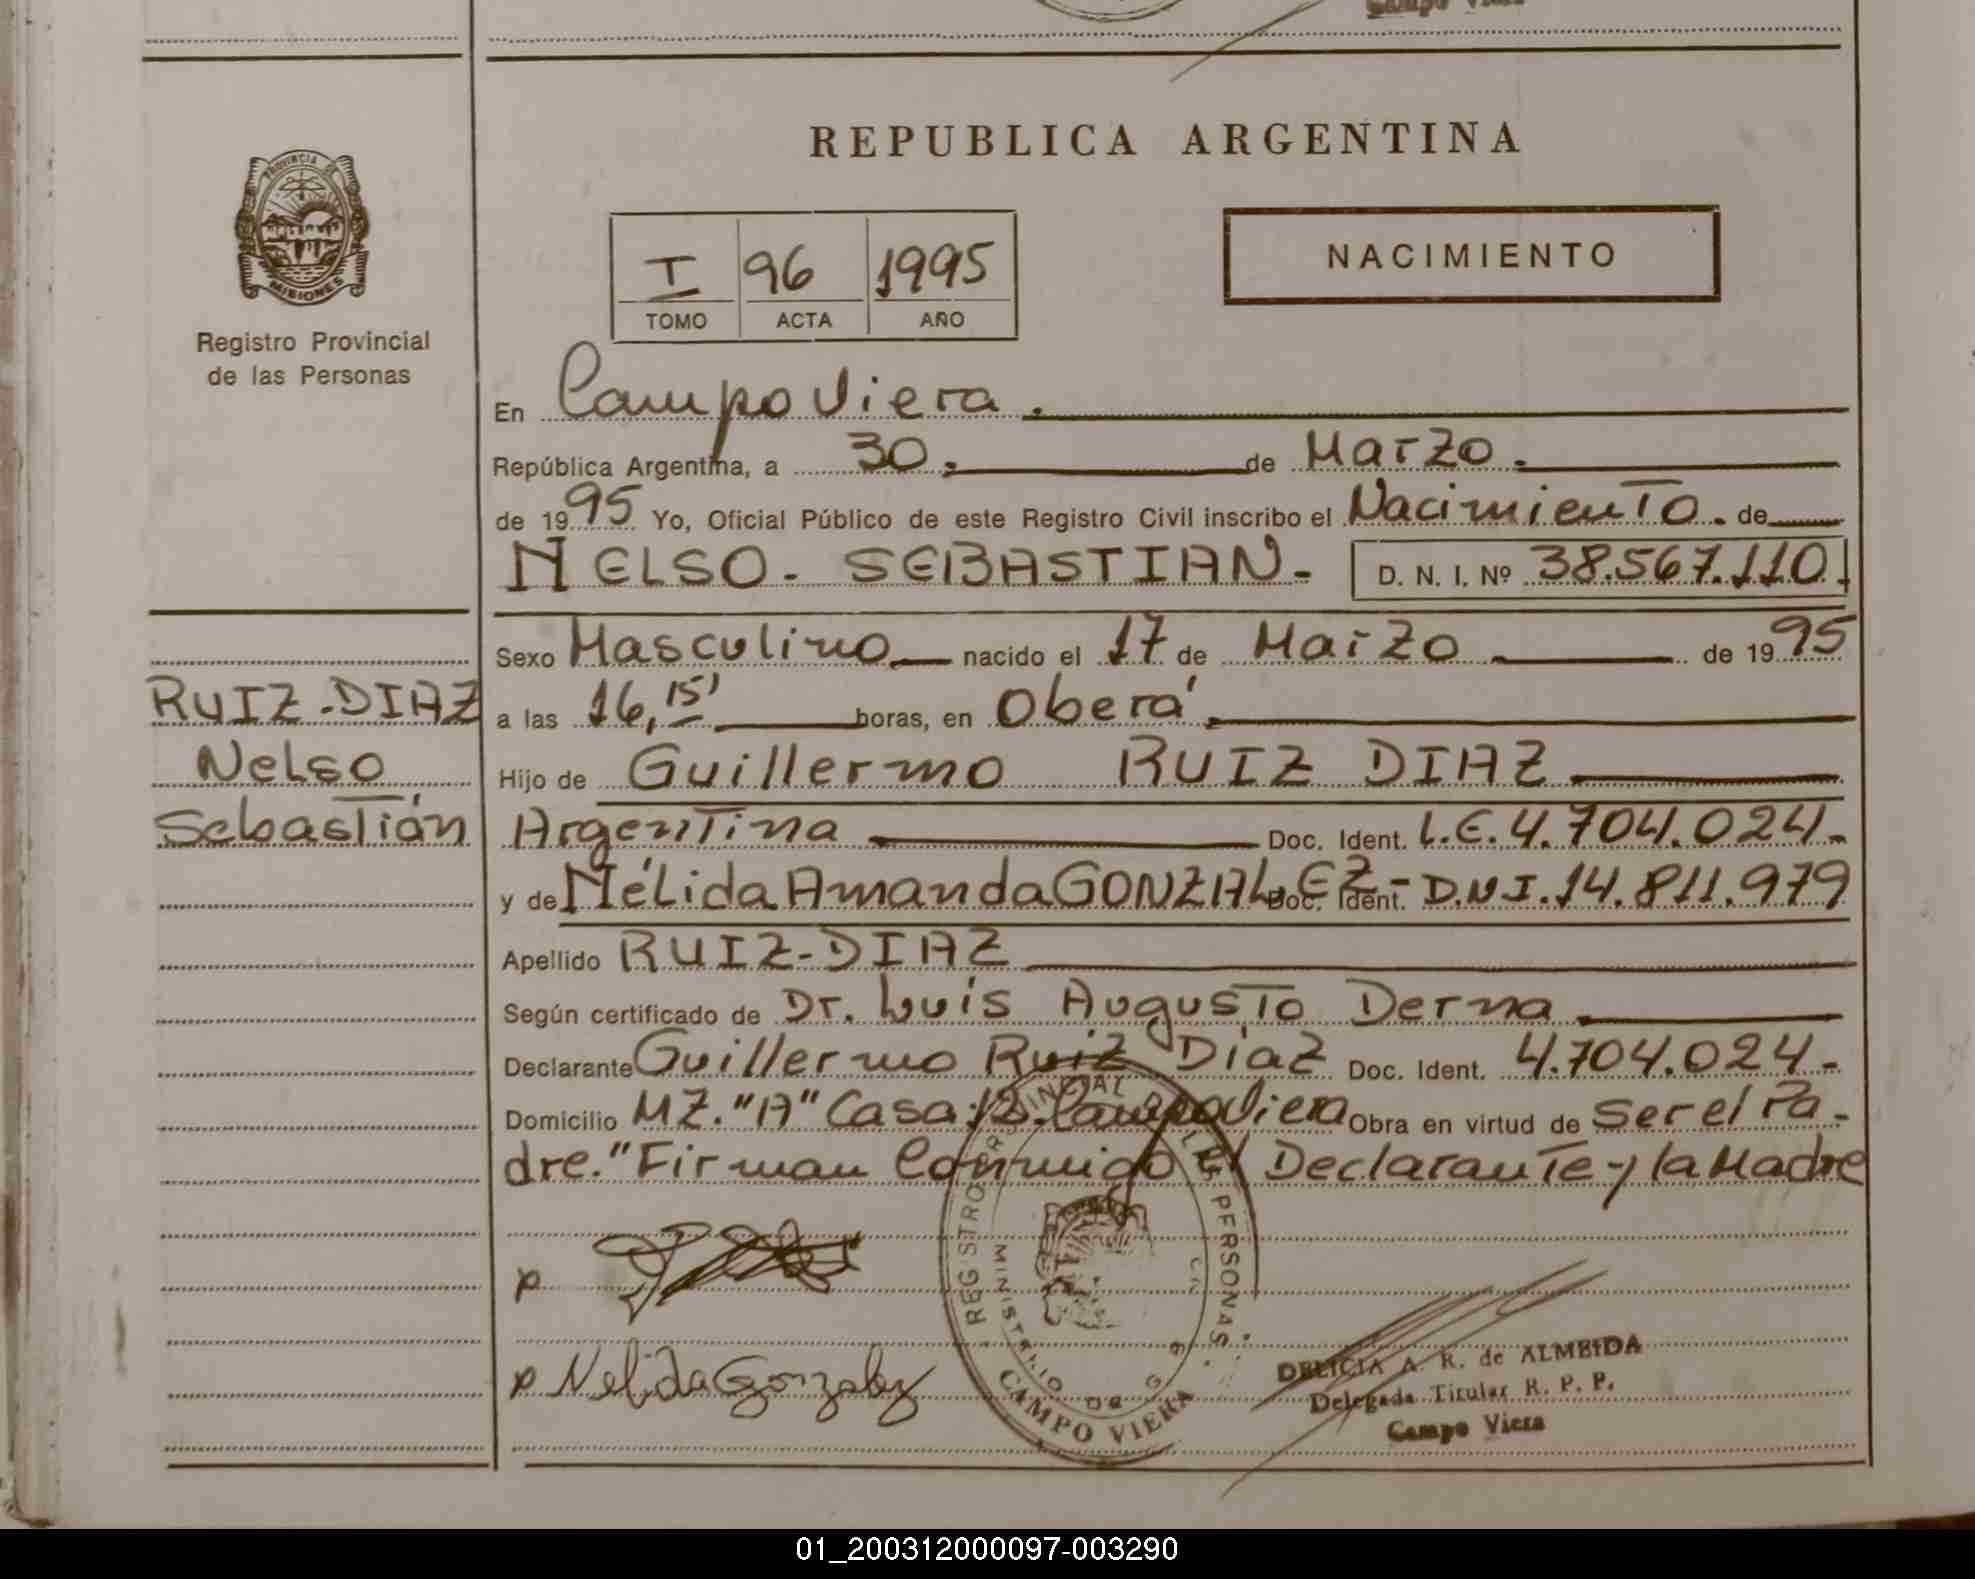 Campo Viera
REPUBLICA ARGENTINA
PROVINCIA DE
MISIONES
Registro Provincial
de las Personas
I 96 1995
TOMO ACTA AÑO
NACIMIENTO
En Campo Viera.
República Argentina, a 30. de Marzo.
de 1995 Yo, Oficial Público de este Registro Civil inscribo el Nacimiento. de
NELSO. SEBASTIAN.- D. N. I. Nº 38.567.110.
Sexo Masculino nacido el 17 de Marzo de 1995
RUIZ-DIAZ
Nelso
Sebastián
a las 16,15' horas, en Oberá
Hijo de Guillermo RUIZ DIAZ
Argentina Doc. Ident. L.E.4.704.024.-
y de Nélida Amanda GONZALEZ- Doc. Ident. D.N.I.14.811.979
Apellido RUIZ-DIAZ
Según certificado de Dr. Luis Augusto Derna
Declarante Guillermo Ruiz Díaz Doc. Ident. 4.704.024.-
Domicilio MZ."A" Casa:12. Campo Viera Obra en virtud de Ser el Pa-
dre."Firman Conmigo el Declarante y la Madre
REGISTRO PROVINCIAL DE LAS PERSONAS
MINISTERIO DE G
CAMPO VIERA
p
p Nelida Gonzalez
DELICIA A. R. de ALMEIDA
Delegada Titular R. P. P.
Campo Viera
01_200312000097-003290